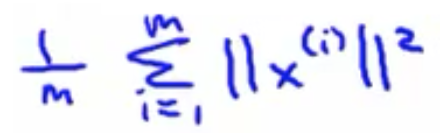 \frac{1}{m} \sum_{i=1}^{m} ||x^{(i)}||^2